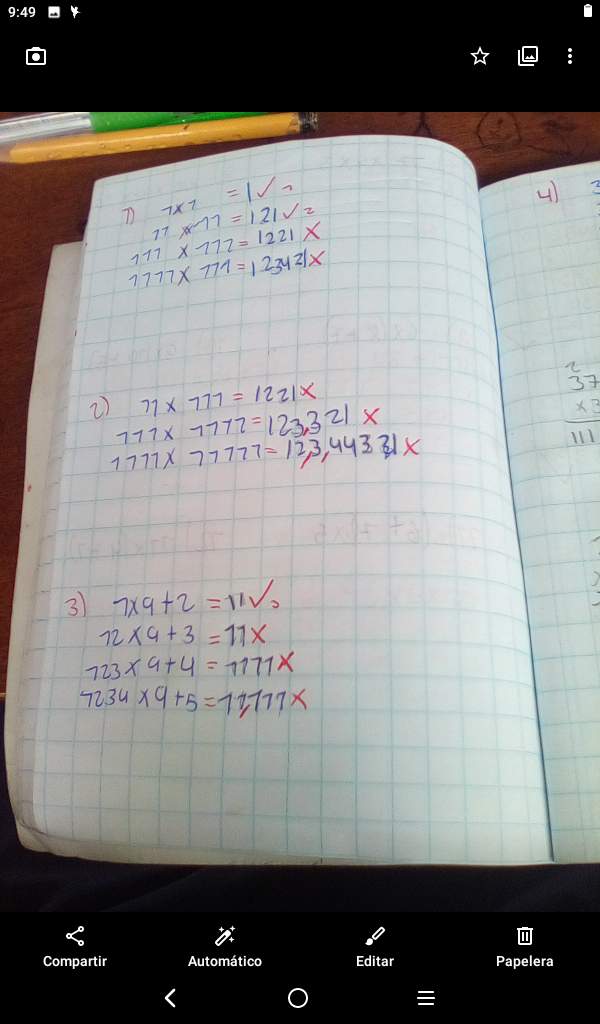 9:49
1) 1x1 = 1 ✓
11 x 11 = 121 ✓
111 x 111 = 1221 X
1111 x 111 = 123421 X
4)
2) 11 x 111 = 1221 X
2
37
x3
111
111 x 1111 = 123,321 X
1111 x 11111 = 12,3,44321 X
3) 1x9+2 = 11 ✓
12x9+3 = 11 X
123x9+4 = 1111 X
1234x9+5 = 11,111 X
Compartir Automático Editar Papelera